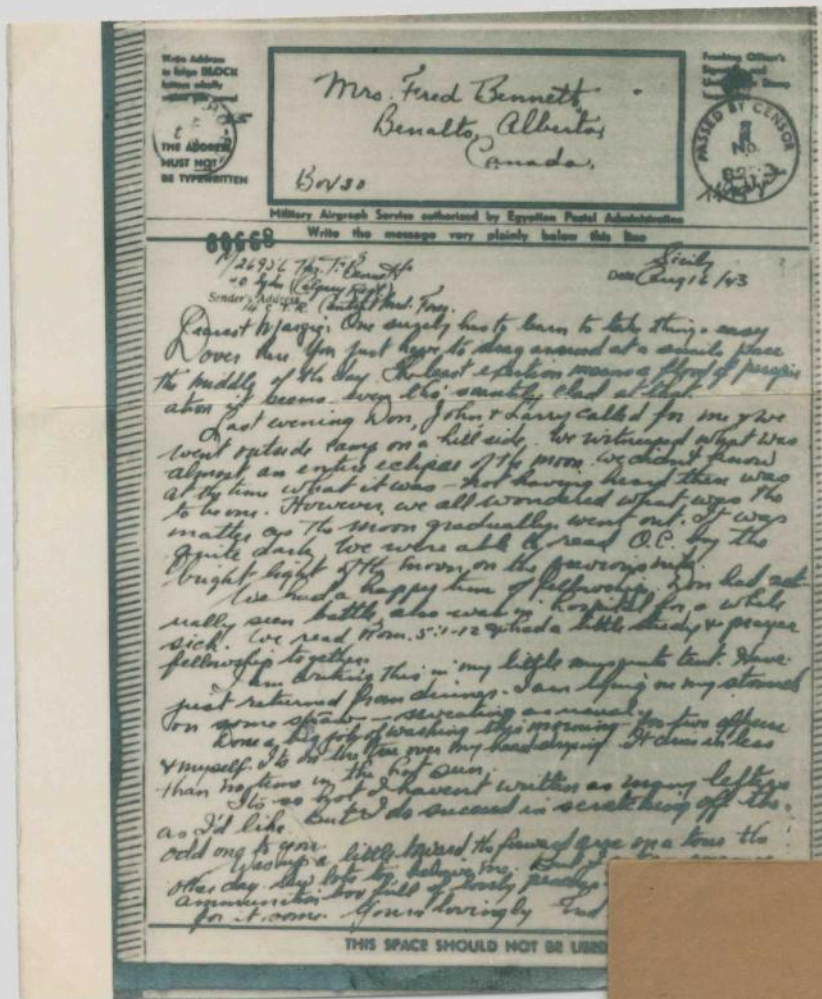 Write Address
in large BLOCK
letters wholly
THE ADDRESS
MUST NOT
BE TYPEWRITTEN
Mrs. Fred Bennett
Benalto, Alberta,
Canada.
Box 30
PASSED BY CENSOR
No.
Military Airgraph Service authorized by Egyptian Postal Administration
Write the message very plainly below this line
Sicily
Date Aug 16/43
Sender's Address
Dearest Margie: One surely has to learn to take things easy
over here. You just have to drag around at a snails pace
the middle of the day. The least exertion means a flood of perspir
ation it seems even tho' scantily clad at that.
Last evening Don, John & Larry called for me & we
went outside camp on a hill side. We witnessed what was
almost an entire eclipse of the moon. We didn't know
at the time what it was - not having heard there was
to be one. However, we all wondered what was the
matter as the moon gradually went out. It was
quite dark. We were able to read O.C. by the
bright light of the moon, on the previous nite.
We had a happy time of fellowship. Don had act-
ually seen battle, also was in hospital for a while
sick. We read Rom. 5:1-12 & had a little study & prayer
fellowship together.
I am writing this in my little mosquito tent. Have
just returned from . I am lying on my stomach
on some straw - sweating as usual.
Done a big job of washing this morning for two officers
& myself. Its on the line over my head drying. It dries in less
than no time in the hot sun.
Its so hot I haven't written as many letters
as I'd like. But I do succeed in scratching off the
odd one to you.
Was up a little toward the forward area on a tour the
other day. Saw lots by
ammunition box full of lovely
for it some. Yours lovingly Fred
THIS SPACE SHOULD NOT BE USED